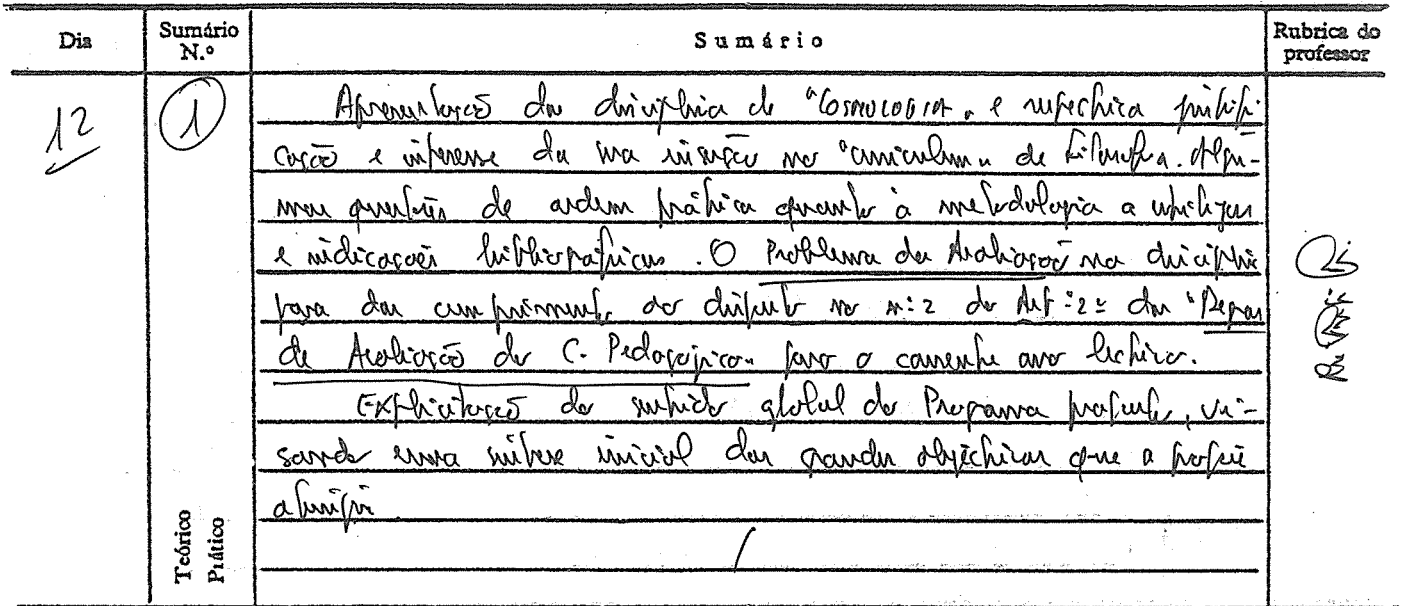 Dia
Sumário N.º
Sumário
Rubrica do professor
12
1
Apresentação da disciplina de "Cosmologia" e respectiva justifi-
cação e interesse da sua inserção no "curriculum" de Filosofia. Algu-
mas questões de ordem prática quanto à metodologia a utilizar
e indicações bibliográficas. O Problema da Avaliação na disciplina
para dar cumprimento ao disposto no n.º 2 do Art.º 2º das "Regras
de Avaliação do C. Pedagógico" para o corrente ano lectivo.
Explicitação do sentido global do Programa proposto, vi-
sando uma síntese inicial dos grandes objectivos que a
atingir
Teórico
Prático